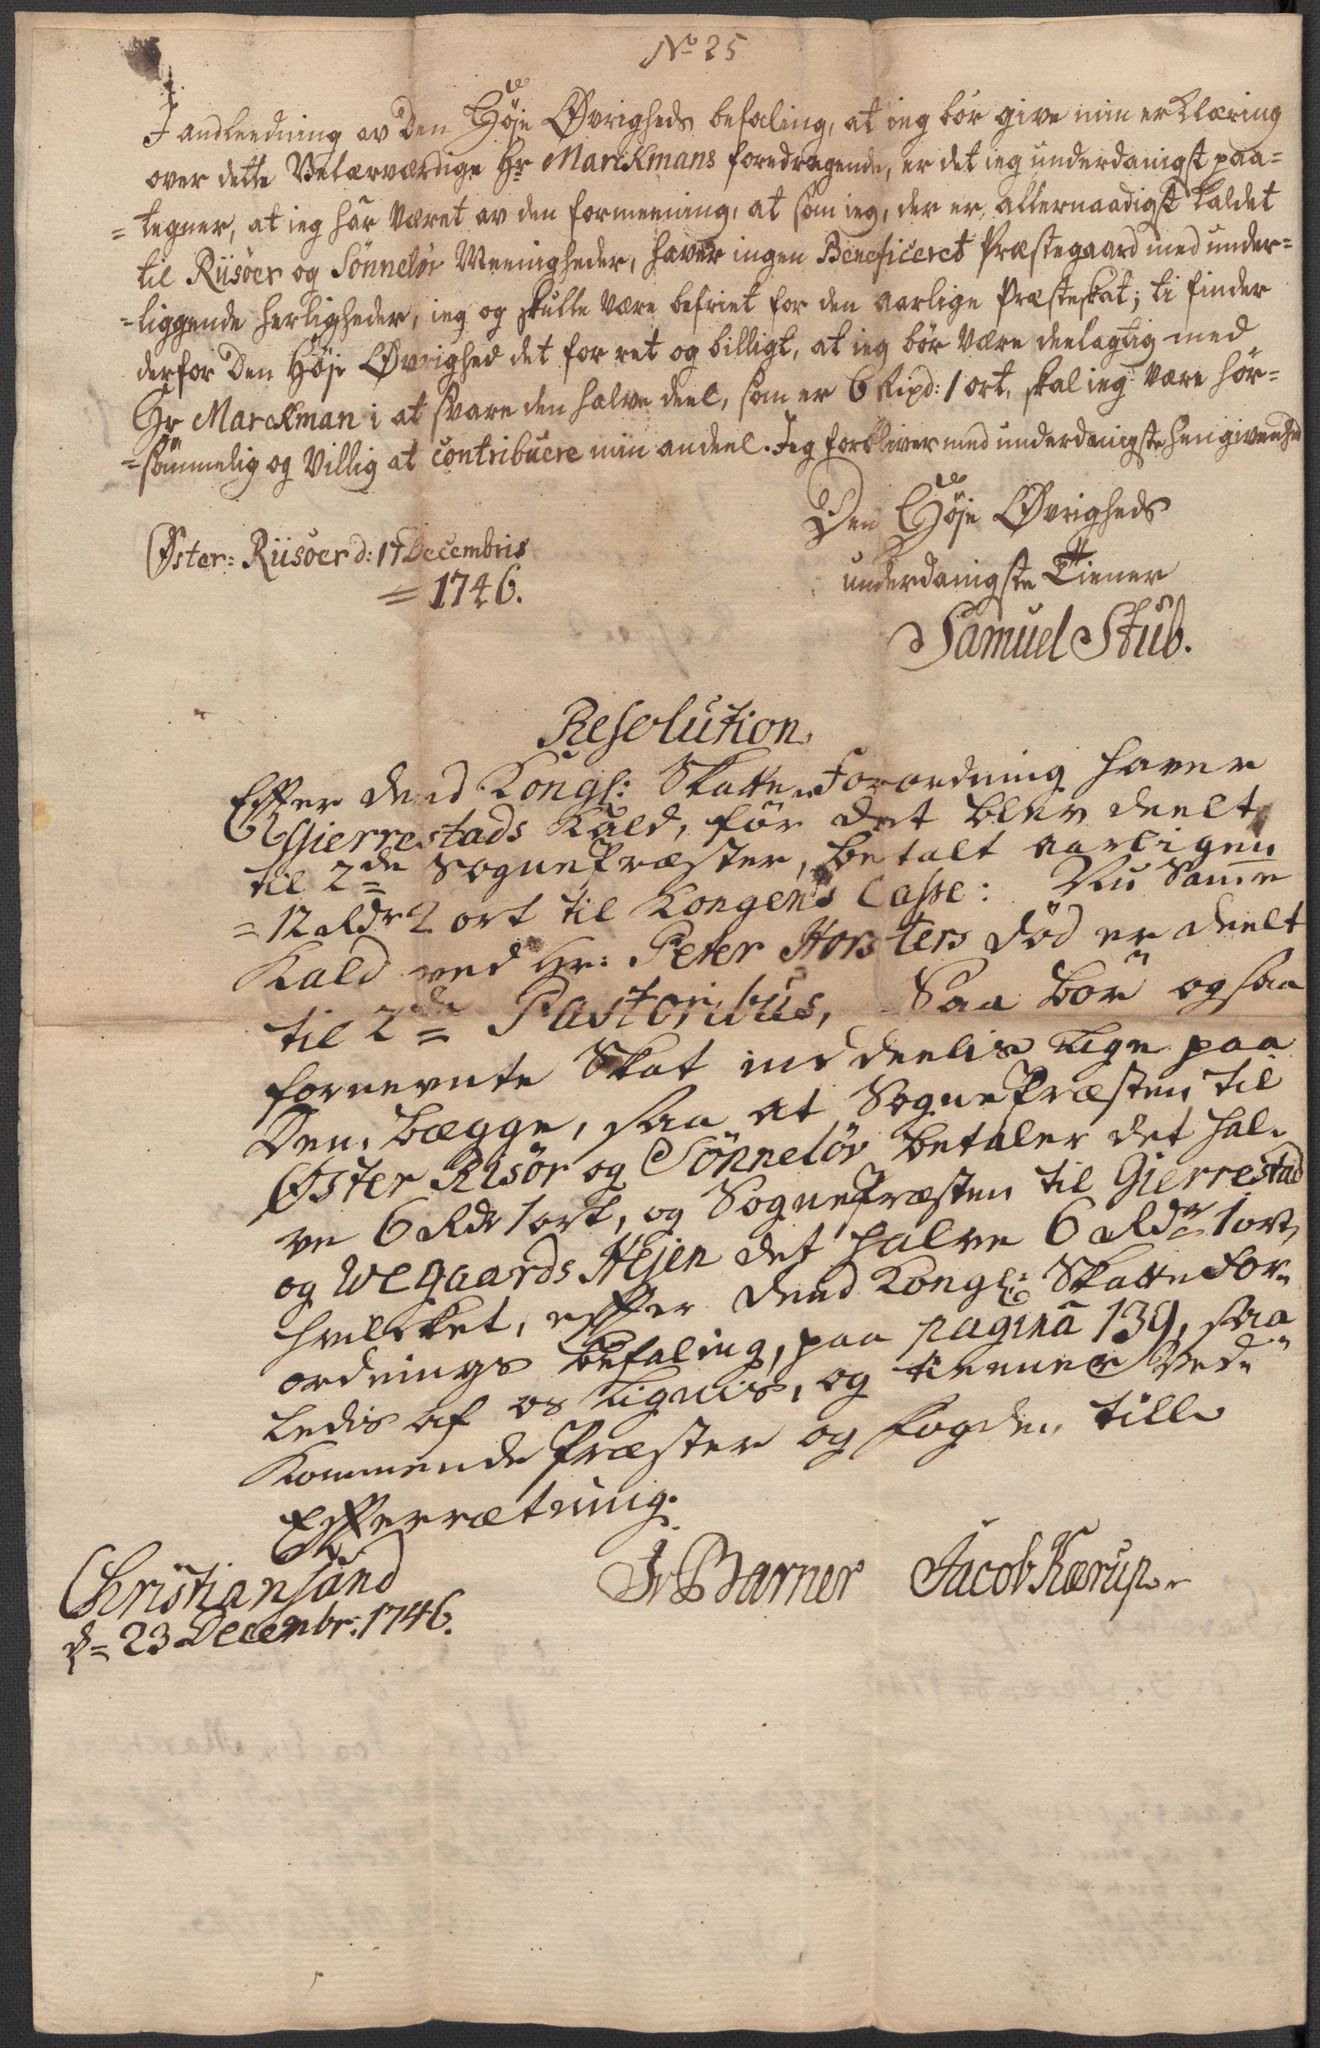 No 25
I andleedning av Den Høje Øvrigheds befaling, at ieg bør give min erklæring
over dette Velærværdige Hr Marckmans foredragende, er det ieg underdanigst paa=
=tegner, at ieg har været av den formeening, at som ieg, der er allernaadigst kaldet
til Riisøer og Sønneløv Meenigheder, haver ingen Beneficeret Præstegaard med under=
=liggende herligheder, ieg og skulle være befriet for den aarlige Præsteskat; ti finder
derfor Den Høje Øvrighed det for ret og billigt, at ieg bør være deelagtig med
Hr Marckman i at svare den halve deel, som er 6 Rixd: 1 ort, skal ieg være hør=
=sommelig og villig at contribuere min andeel. Jeg forbliver med underdanigste hengivenhed
Den Høje Øvrigheds
Øster: Riisøer d: 17 Decembris
underdanigste Tiener
= 1746.
Samuel Stub.
Resolution.
Efter dend Kongl: Skatte Forordning haver
Gjerrestads Kald, før det blev deelt
til 2de SognePræster, betalt aarligen
= 12 Rdr 2 ort til Kongens Casse: Nu Samme
Kald ved Hr: Peter Horsters død er deelt
til 2de Pastoribus, Saa bør og saa
fornevnte Skat inddeelis lige paa
Dem begge, saa at SognePræsten til
Øster Risør og Sønneløv betaler det hal-
ve 6 Rdr 1 ort, og SognePræsten til Gjerrestad
og Wegaards Hejen det halve 6 Rdr 1 ort,
hvilcket, efter dend Kongl: Skatte For-
ordnings befaling, paa pagina 139, saa
ledis af os lignis, og tienner Ved-
kommende Præster og Fogden till
Efterrætning.
Christiansand
d= 23 Decembr: 1746.
JvBarner Jacob Kærup